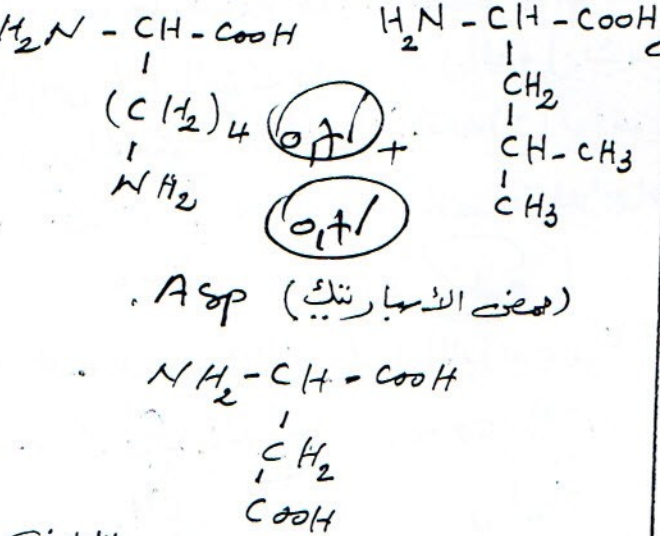 H₂N - CH - COOH
(CH₂)₄
NH₂
+
H₂N - CH - COOH
CH₂
CH - CH₃
CH₃
Asp (حمض الأسبارتيك)
NH₂ - CH - COOH
CH₂
COOH